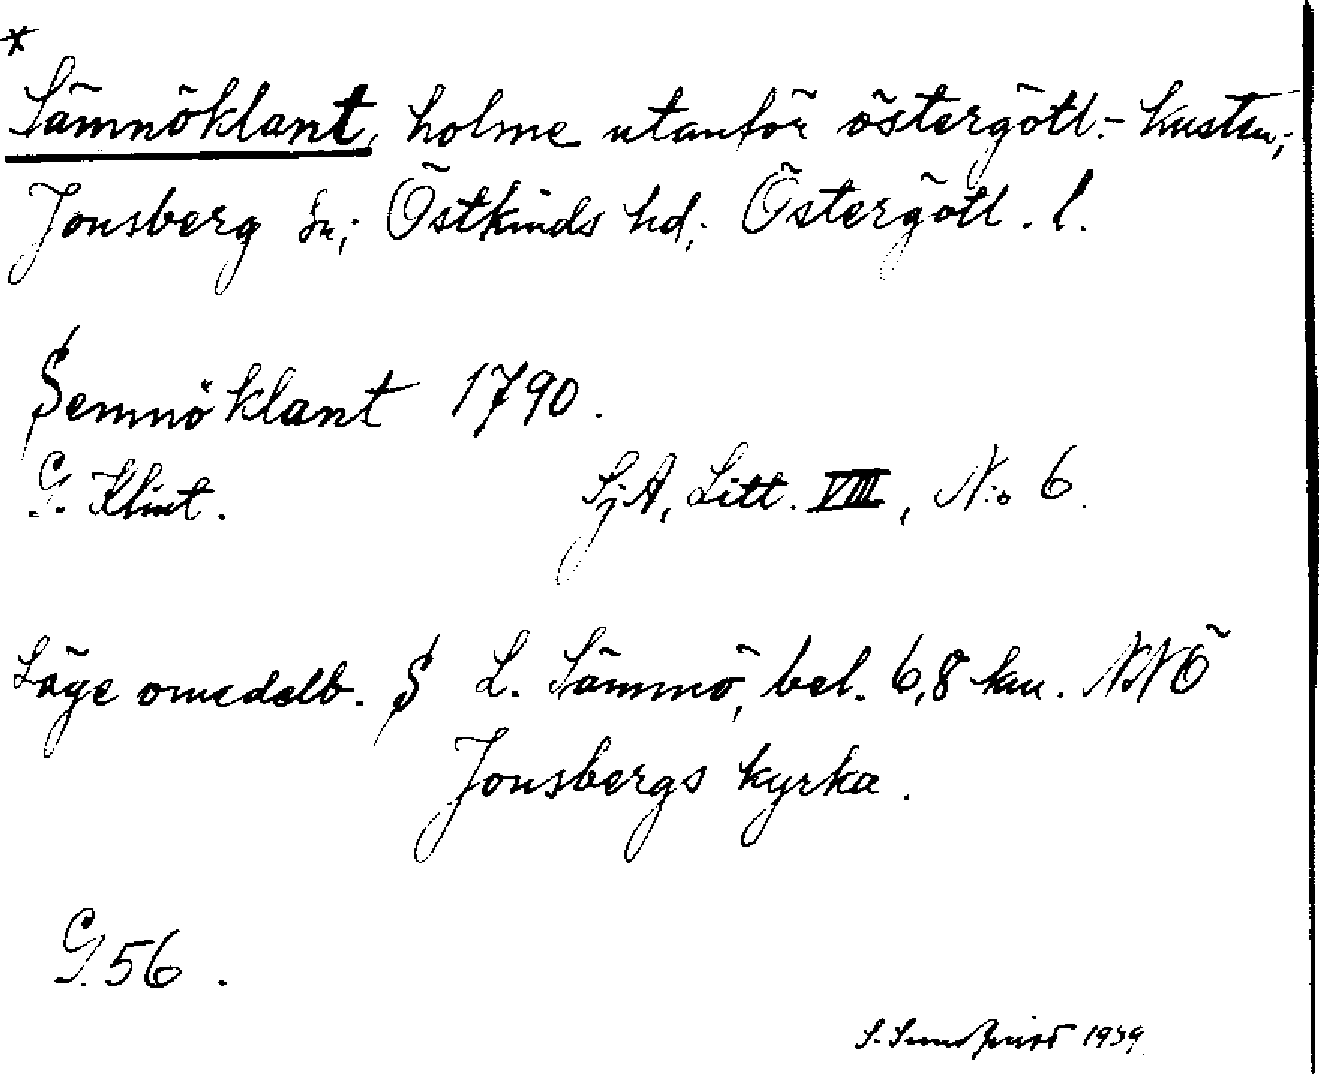 *
Sämnöklant, holme utanför östergötl.-kusten;
Jonsberg sn; Östkinds hd; Östergötl. l.
Semnöklant 1790.
G. Klint. SjA, Litt. VIII, N:o 6.
Läge omedelb. S L. Sämnö, bel. 6,8 km. NNÖ
Jonsbergs kyrka.
G. 56.
S. Sundqvist 1939